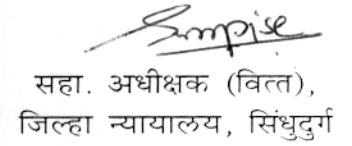 सहा. अधीक्षक (वित्त),
जिल्हा न्यायालय, सिंधुदुर्ग